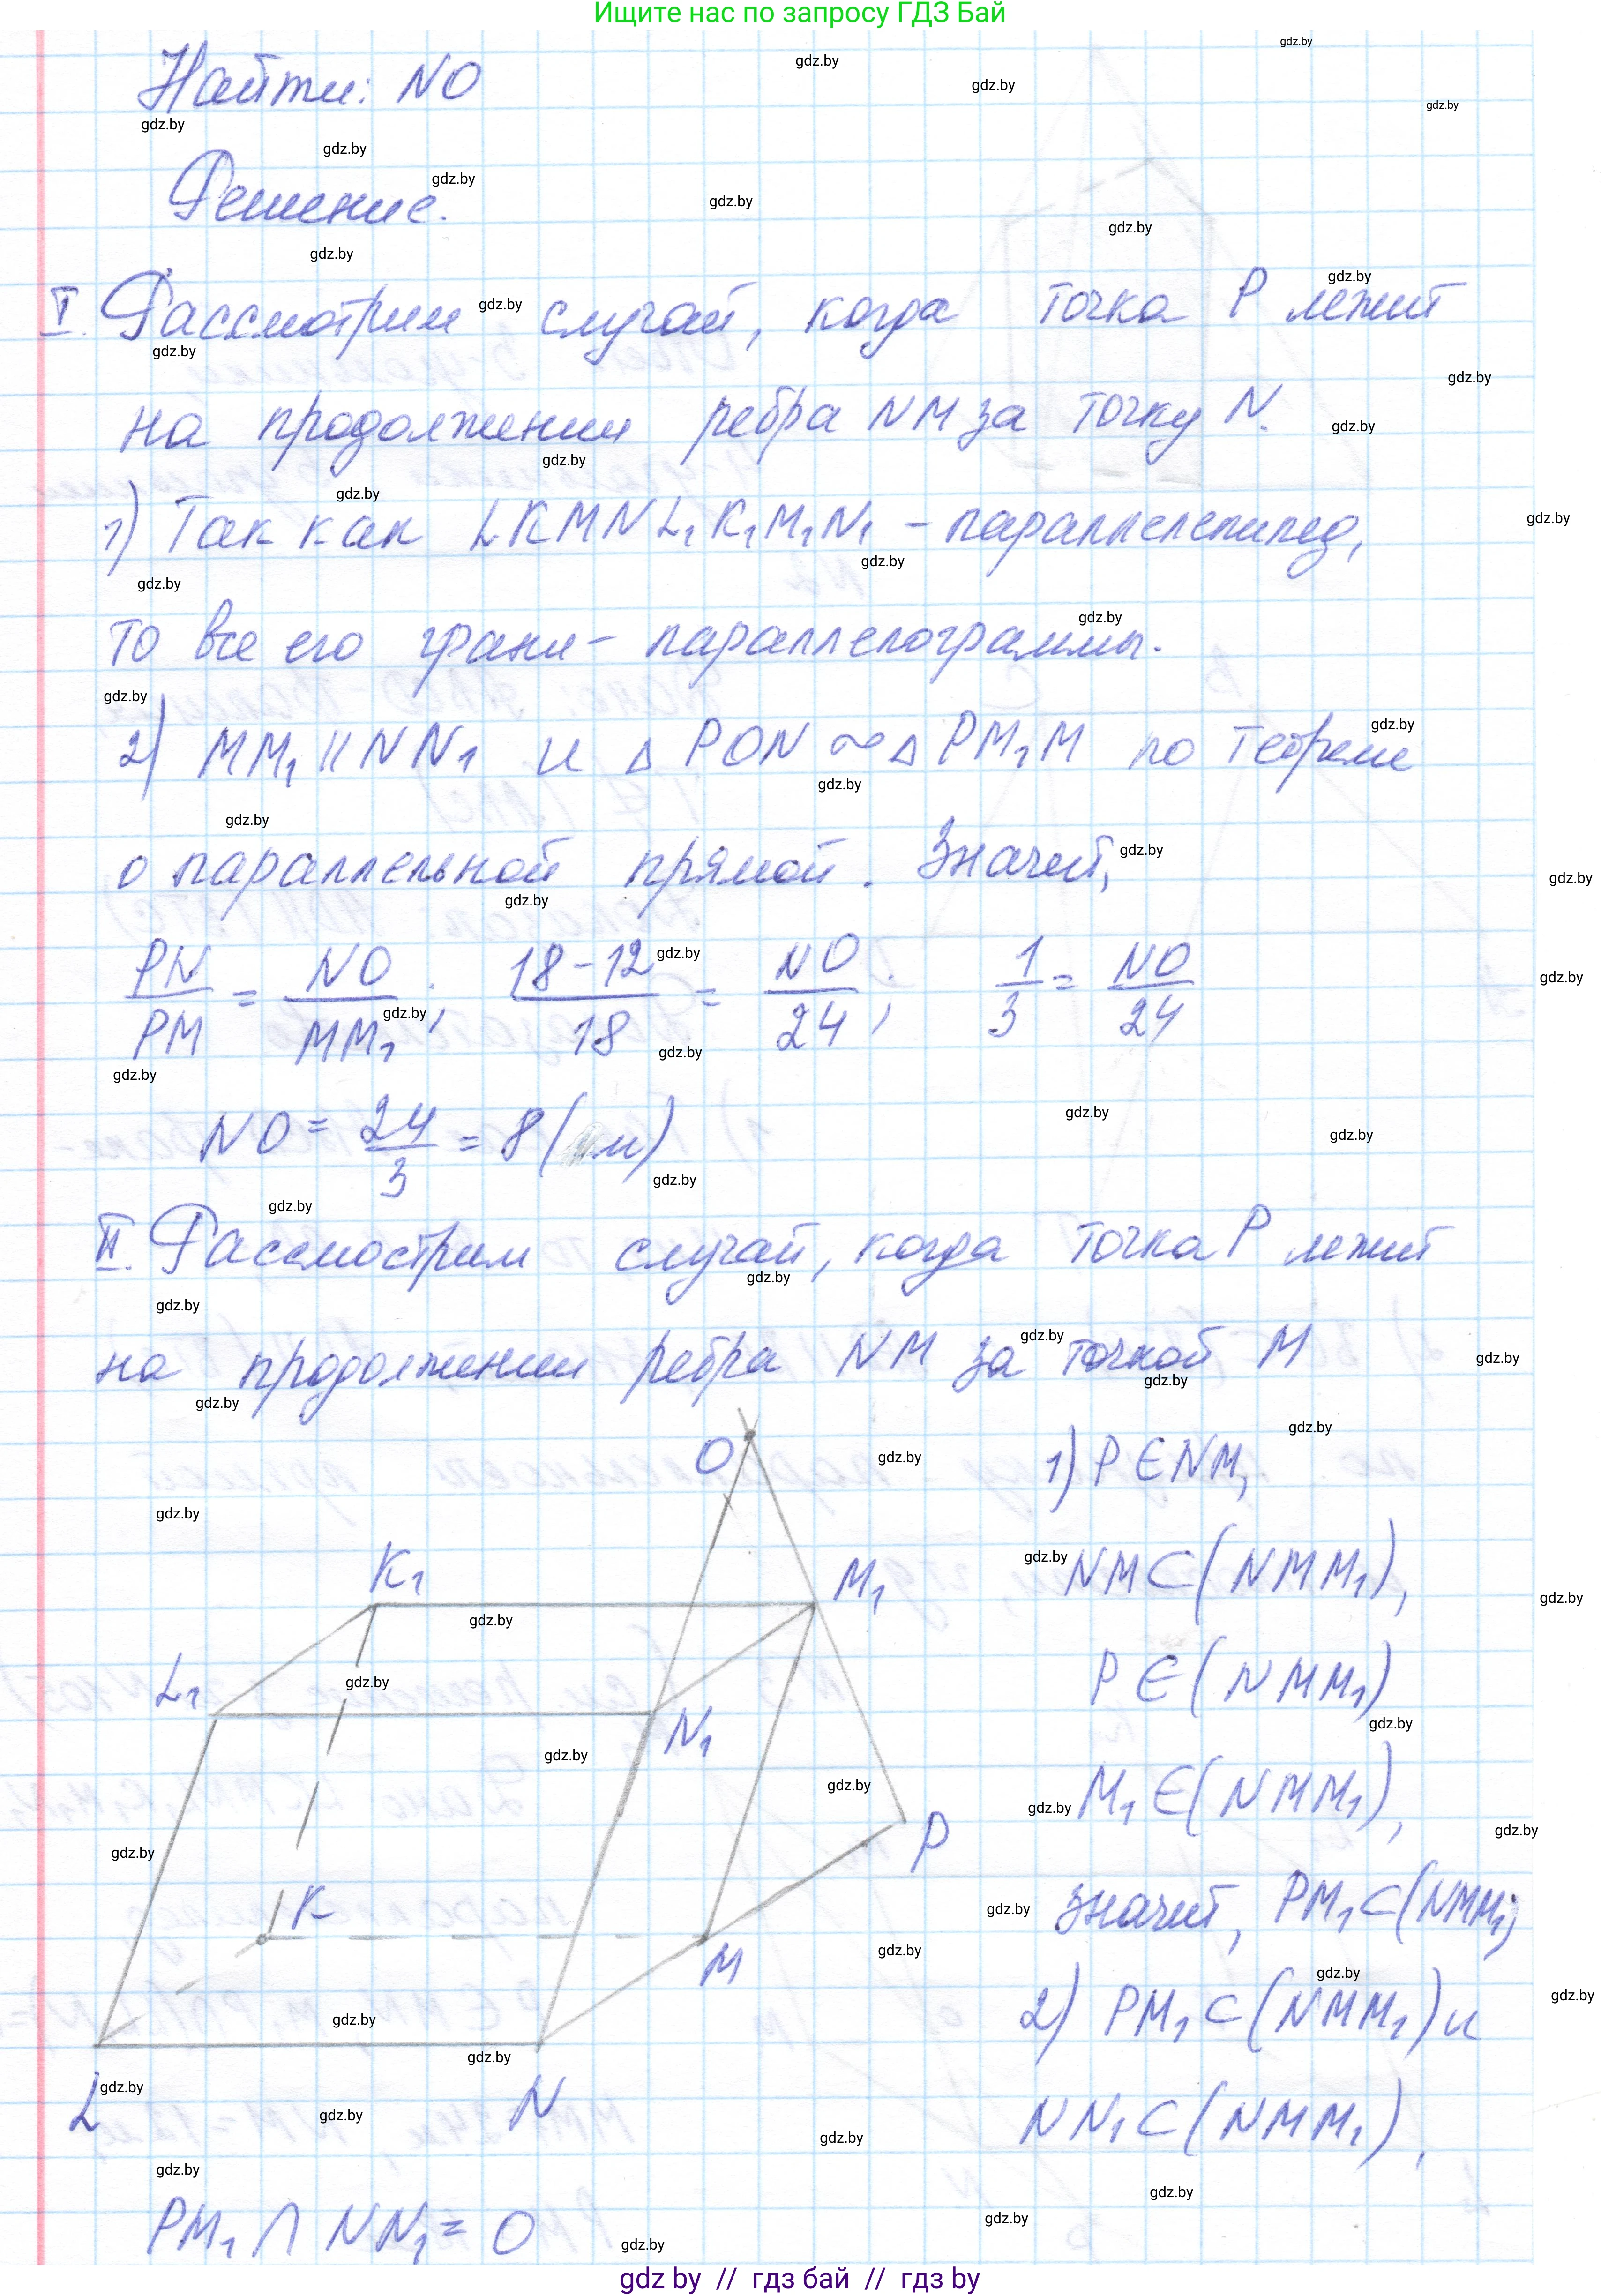 Ищите нас по запросу ГДЗ Бай
Найти: NO
Решение.
I. Рассмотрим случай, когда точка P лежит
на продолжении ребра NM за точку N.
1) Так как LKMNL₁K₁M₁N₁ – параллелепипед,
то все его грани – параллелограммы.
2) MM₁ || NN₁ и △ PON ~ △ PM₁M по теореме
о параллельной прямой. Значит,
PN/PM = NO/MM₁; (18-12)/18 = NO/24; 1/3 = NO/24
NO = 24/3 = 8 (м)
II. Рассмострим случай, когда точка P лежит
на продолжении ребра NM за точкой M
O
K₁
M₁
L₁
N₁
P
K
M
L
N
1) P ∈ NM,
NM ⊂ (NMM₁),
P ∈ (NMM₁)
M₁ ∈ (NMM₁),
значит, PM₁ ⊂ (NMM₁)
2) PM₁ ⊂ (NMM₁) и
NN₁ ⊂ (NMM₁),
PM₁ ∩ NN₁ = O
gdz by // гдз бай // гдз by